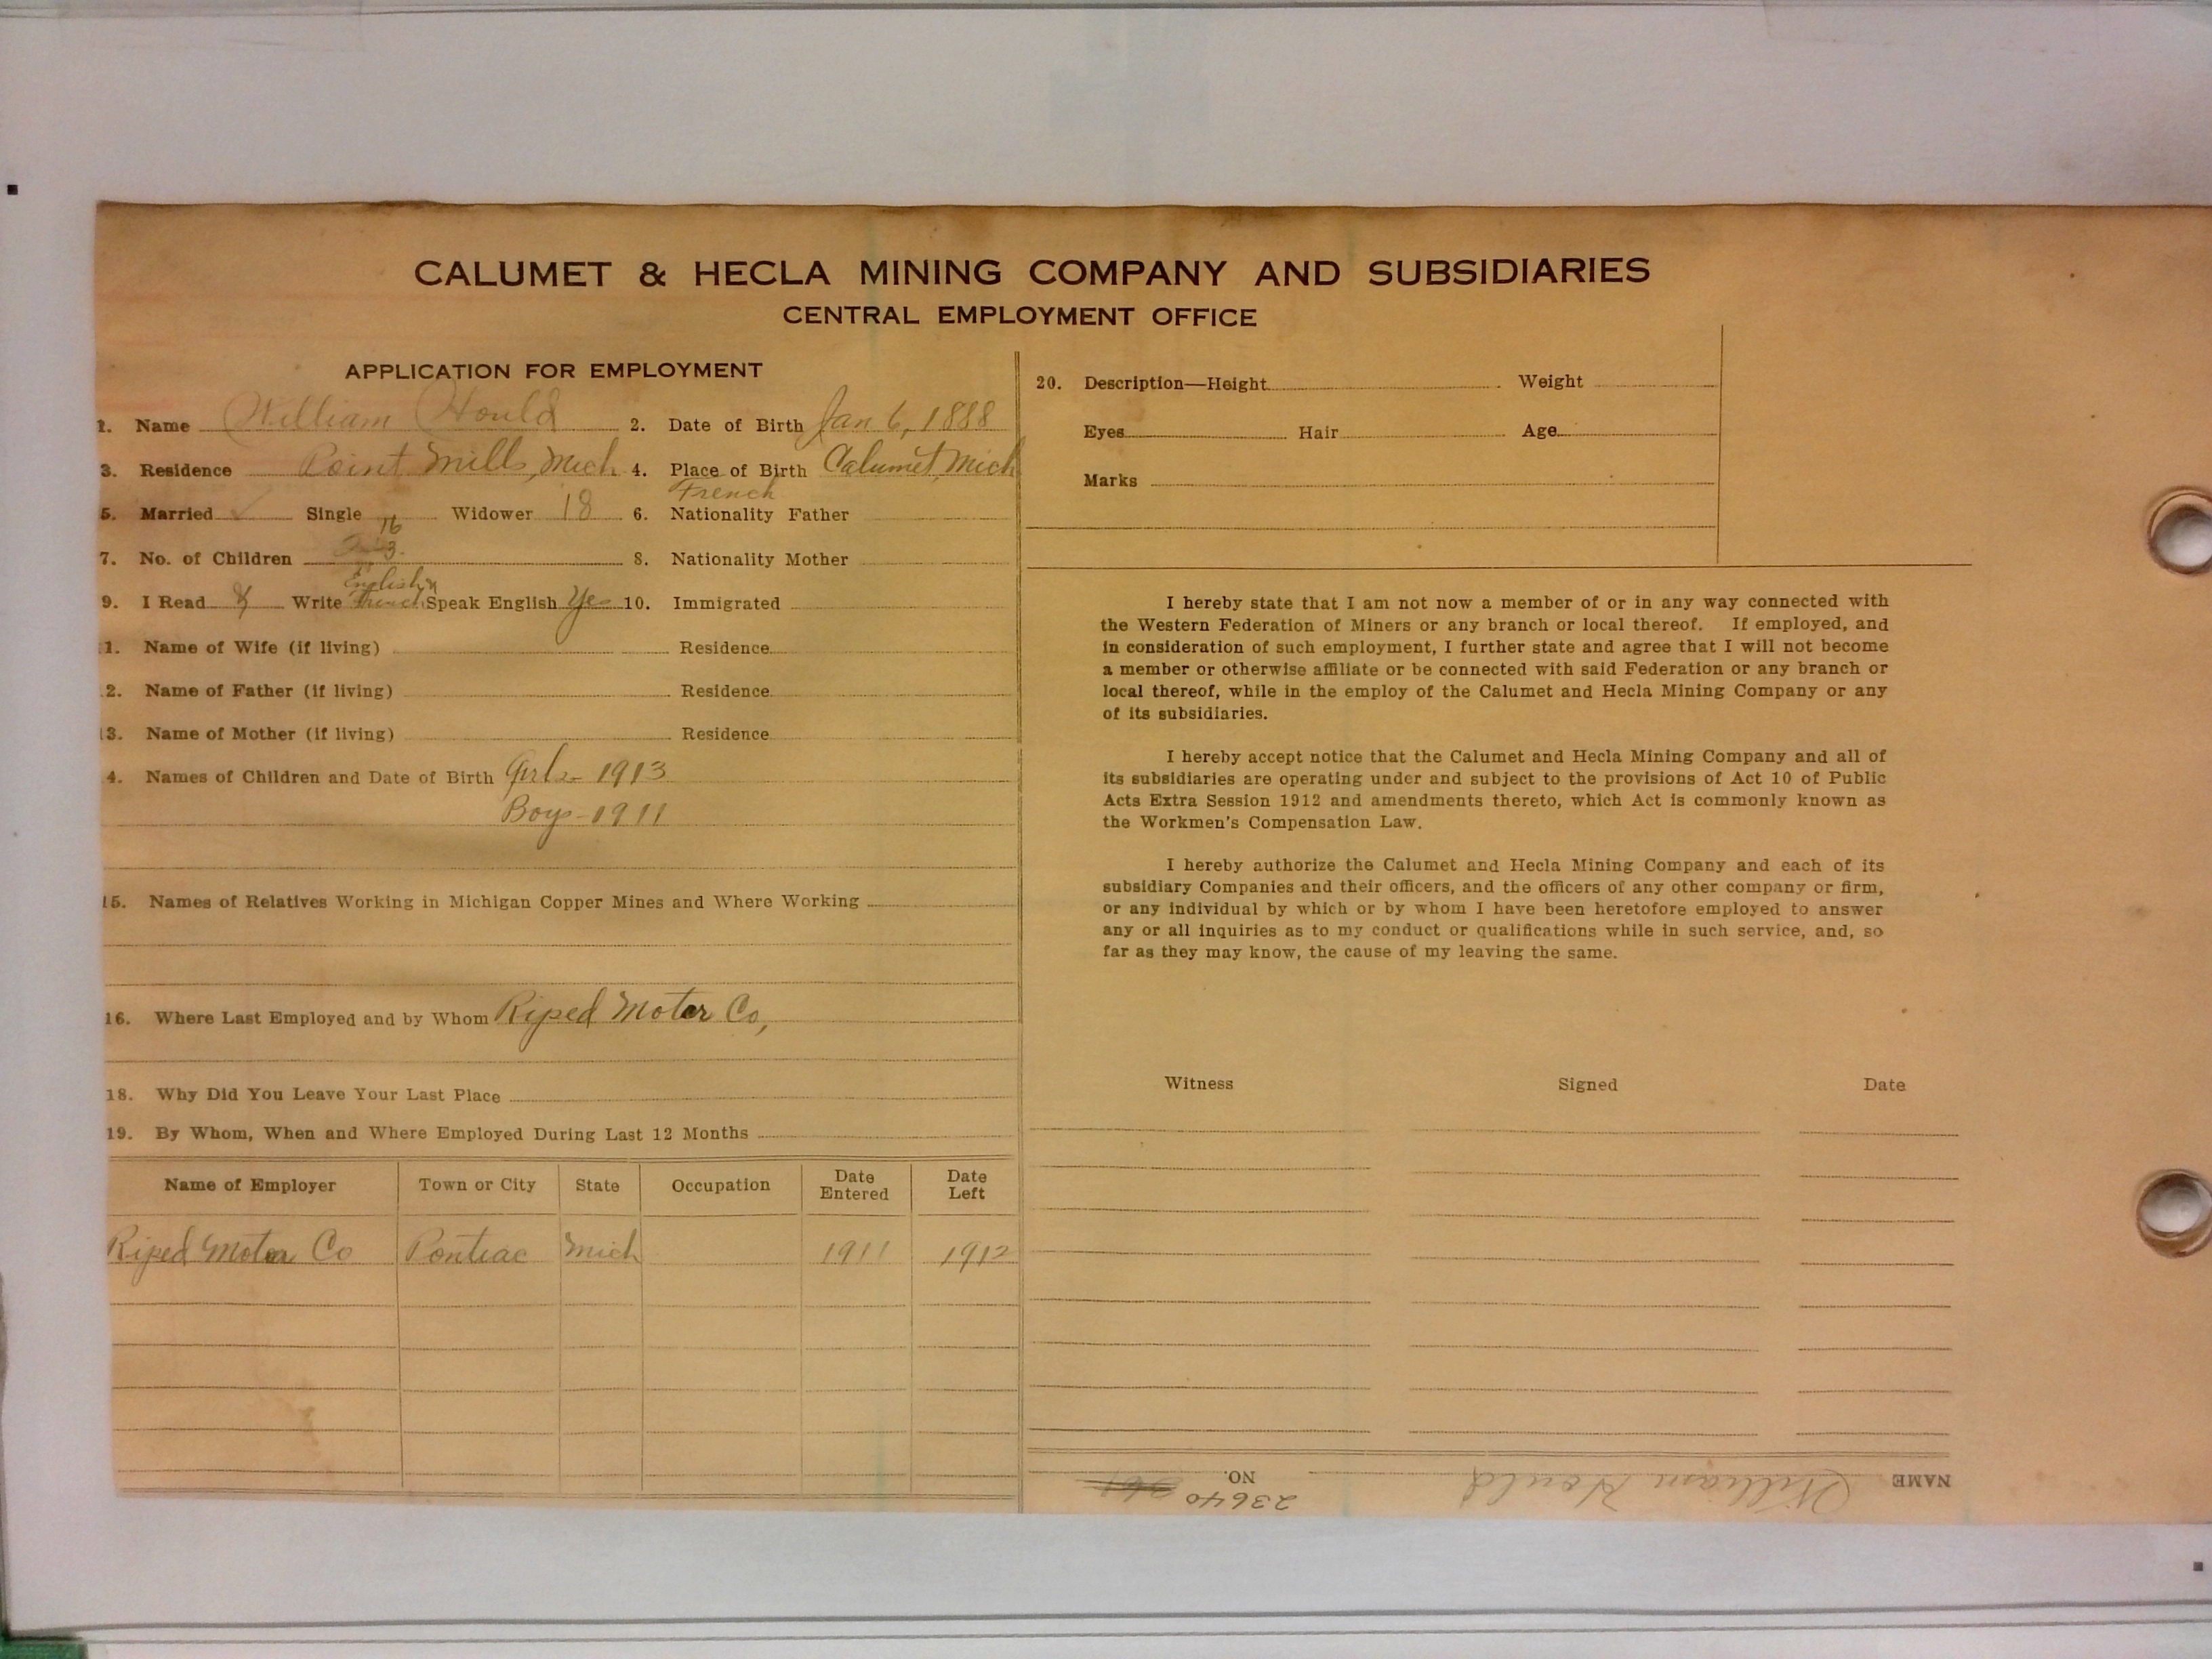 CALUMET & HECLA MINING COMPANY AND SUBSIDIARIES
CENTRAL EMPLOYMENT OFFICE
APPLICATION FOR EMPLOYMENT
1. Name William Hould 2. Date of Birth Jan 6, 1888
3. Residence Point Mills, Mich 4. Place of Birth Calumet, Mich
French
5. Married ✓ Single Widower 18 6. Nationality Father
16
7. No. of Children 3. 8. Nationality Mother
English
9. I Read Write French Speak English Yes 10. Immigrated
1. Name of Wife (if living) Residence
2. Name of Father (if living) Residence
13. Name of Mother (if living) Residence
4. Names of Children and Date of Birth Girls - 1913
Boys - 1911
15. Names of Relatives Working in Michigan Copper Mines and Where Working
16. Where Last Employed and by Whom Riped Motor Co,
18. Why Did You Leave Your Last Place
19. By Whom, When and Where Employed During Last 12 Months
Name of Employer Town or City State Occupation Date Entered Date Left
Riped Motor Co Pontiac Mich 1911 1912
20. Description—Height Weight
Eyes Hair Age
Marks
I hereby state that I am not now a member of or in any way connected with
the Western Federation of Miners or any branch or local thereof. If employed, and
in consideration of such employment, I further state and agree that I will not become
a member or otherwise affiliate or be connected with said Federation or any branch or
local thereof, while in the employ of the Calumet and Hecla Mining Company or any
of its subsidiaries.
I hereby accept notice that the Calumet and Hecla Mining Company and all of
its subsidiaries are operating under and subject to the provisions of Act 10 of Public
Acts Extra Session 1912 and amendments thereto, which Act is commonly known as
the Workmen's Compensation Law.
I hereby authorize the Calumet and Hecla Mining Company and each of its
subsidiary Companies and their officers, and the officers of any other company or firm,
or any individual by which or by whom I have been heretofore employed to answer
any or all inquiries as to my conduct or qualifications while in such service, and, so
far as they may know, the cause of my leaving the same.
Witness Signed Date
NAME William Hould NO. 23640